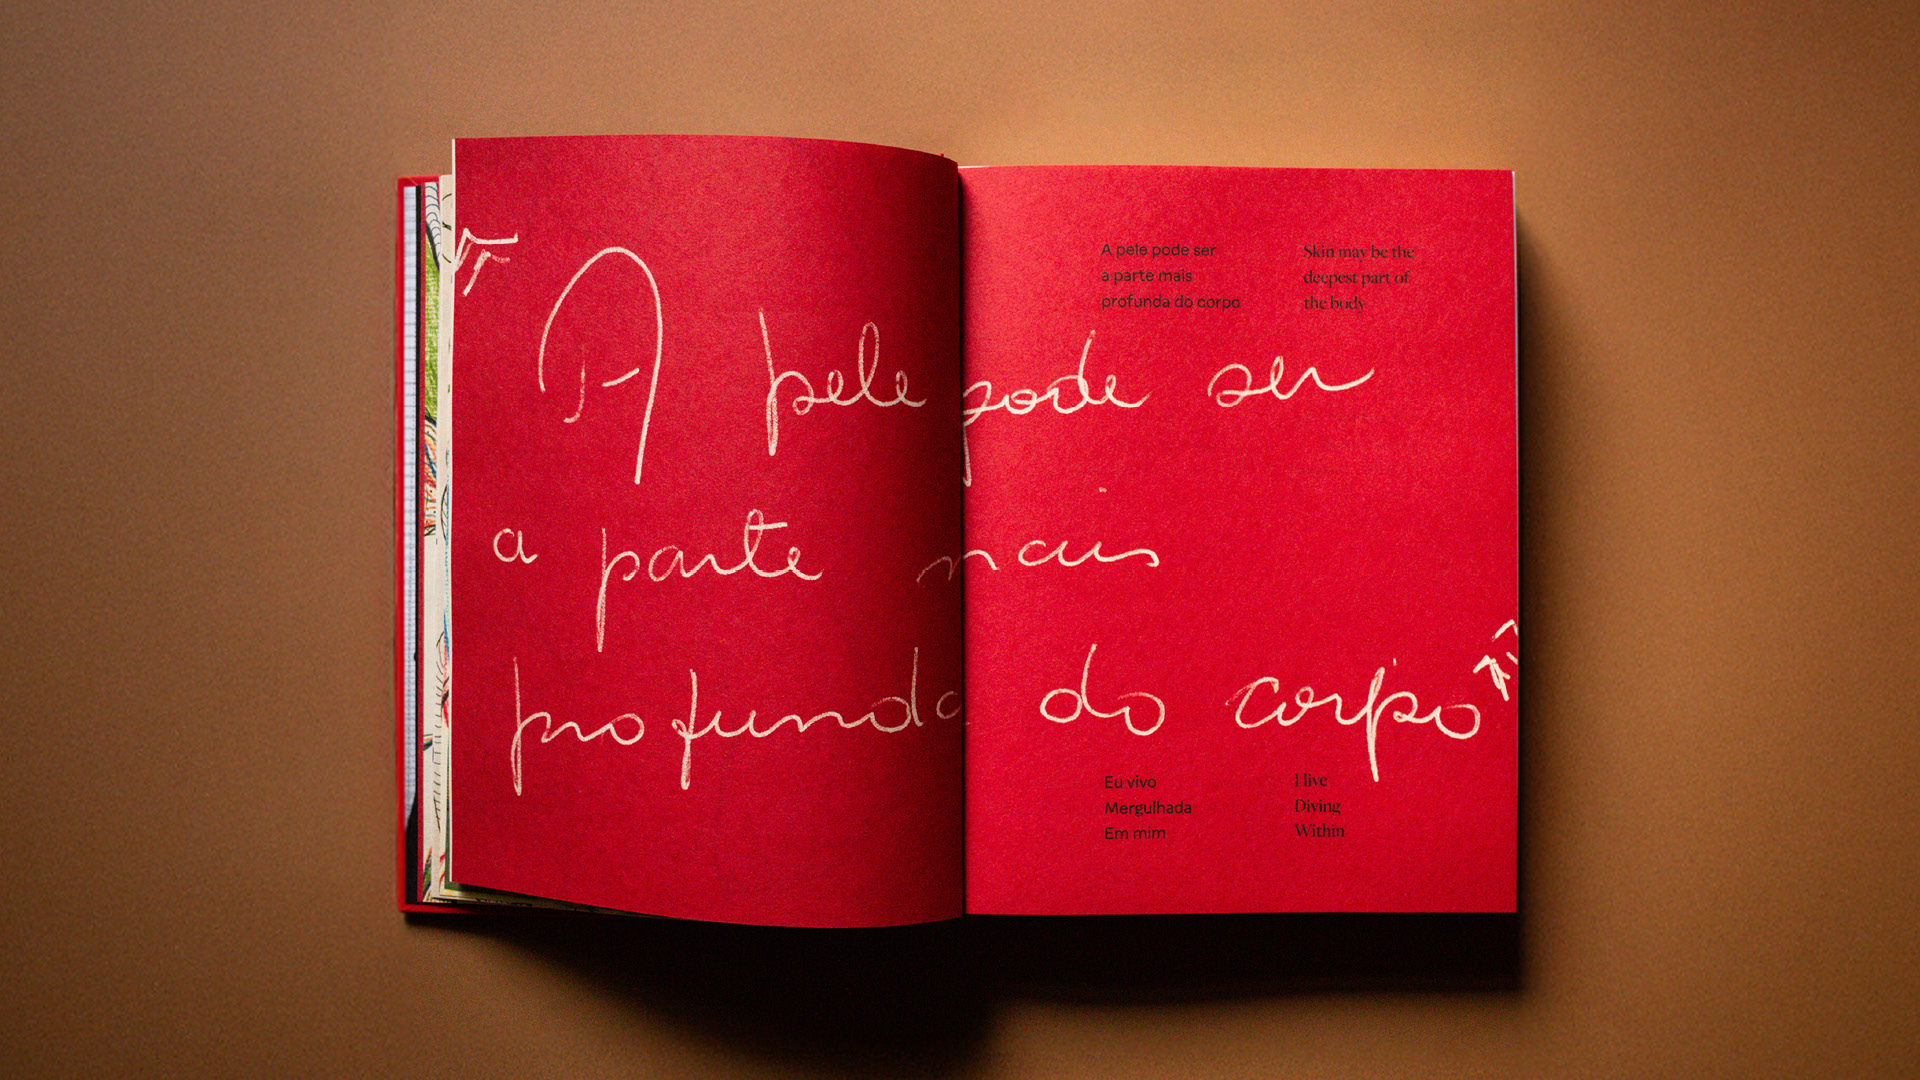 A pele pode ser
a parte mais
profunda do corpo
A pele pode ser
a parte mais
profunda do corpo
Skin may be the
deepest part of
the body
Eu vivo
Mergulhada
Em mim
I live
Diving
Within